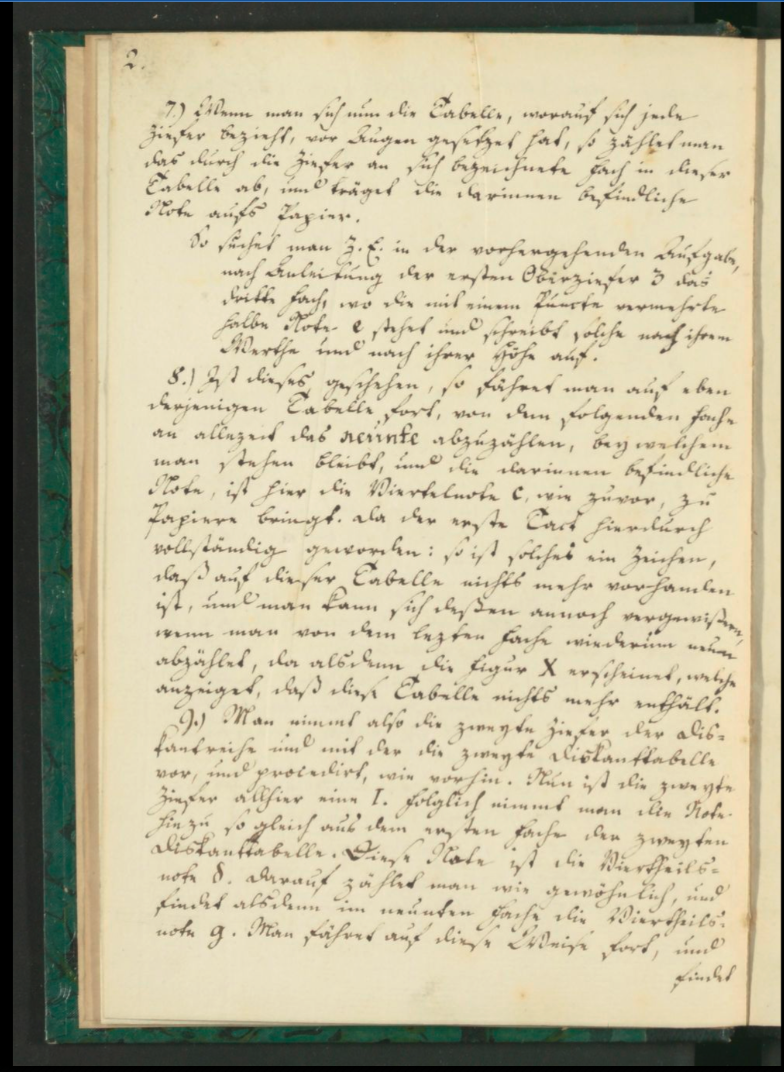 2.
7.) Wenn man sich nun die Tabelle, worauf sich jede
Ziefer bezieht, vor Augen gesetzet hat, so zählet man
das durch die Ziefer an sich bezeichnete Fach in dieser
Tabelle ab, und träget die darinnen befindliche
Note aufs Papier.
So suchet man z. E. in der vorhergehenden Aufgabe,
nach Anleitung der ersten Oberziefer 3 das
dritte Fach, wo die mit einem Puncte vermehrte
halbe Note e stehet und schreibt solche nach ihrem
Werthe und nach ihrer Höhe auf.
8.) Ist dieses geschehen, so fähret man auf eben
derjenigen Tabelle fort, von dem folgenden Fache
an allezeit das neunte abzuzählen, bey welchem
man stehen bleibt, und die darinnen befindliche
Note, ist hier die Viertelnote c, wie zuvor, zu
Papiere bringt. Da der erste Tact hierdurch
vollständig geworden: so ist solches ein Zeichen,
daß auf dieser Tabelle nichts mehr vorhanden
ist, und man kann sich deßen annoch vergewißern,
wenn man von dem lezten Fache wiederum neune
abzählet, da alsdenn die Figur X erscheinet, welche
anzeiget, daß diese Tabelle nichts mehr enthält.
9.) Man nimmt also die zweyte Ziefer der Dis=
kantreihe und mit der die zweyte Diskanttabelle
vor, und procedirt, wie vorhin. Nun ist die zweyte
Ziefer allhier eine 1. folglich nimmt man die Note
hiezu so gleich aus dem ersten Fache der zweyten
Diskanttabelle. Diese Note ist die Viertheils=
note d. Darauf zählet man wie gewöhnlich, und
findet alsdenn im neunten Fache die Viertheils=
note g. Man fähret auf diese Weise fort, und
findet